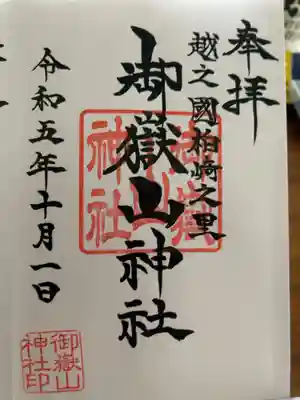 奉拝
越之國柏崎之里
御嶽山神社
御嶽山神社
令和五年十月一日
御嶽山
神社印